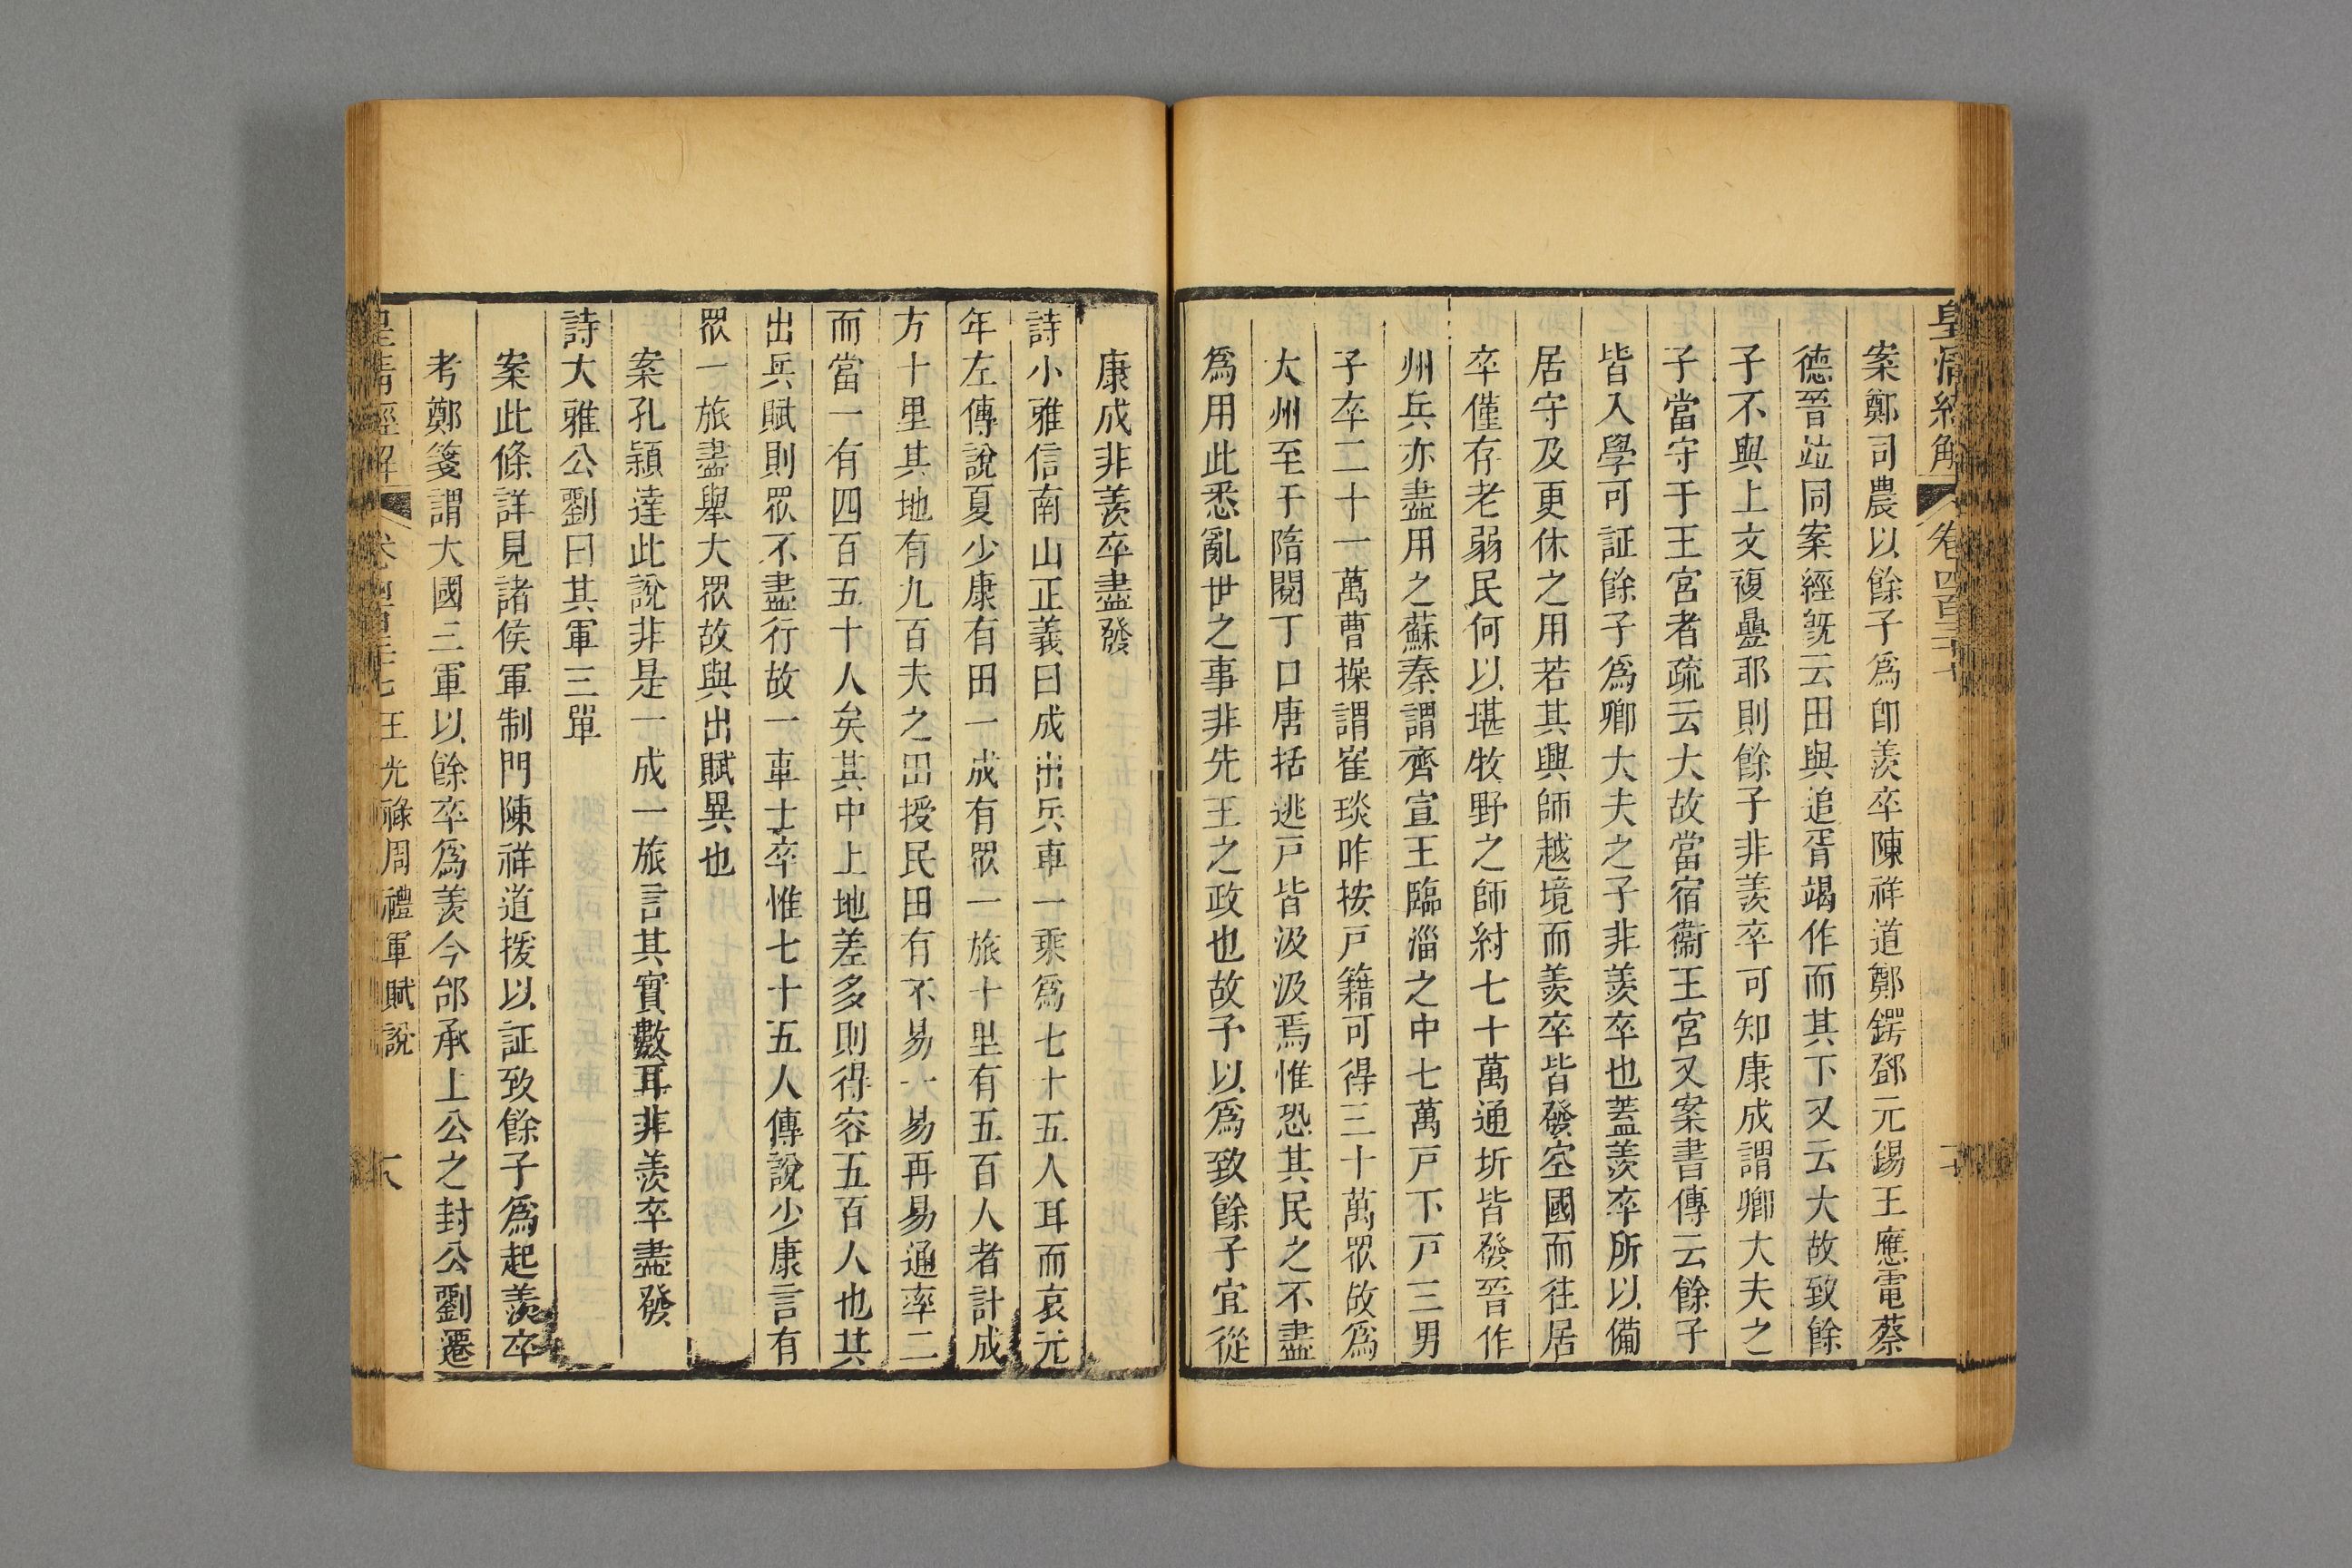 皇清經解
卷四百三十七
案鄭司農以餘子爲卽羨卒陳祥道鄭鍔鄧元錫王應電蔡
德晉竝同案經旣云田與追胥竭作而其下又云大故致餘
子不與上文複疊耶則餘子非羨卒可知康成謂卿大夫之
子當守于王宮者疏云大故當宿衞王宮又案書傳云餘子
皆入學可証餘子爲卿大夫之子非羨卒也蓋羨卒所以備
居守及更休之用若其興師越境而羨卒皆發空國而往居
卒僅存老弱民何以堪牧野之師紂七十萬通圻皆發晉作
州兵亦盡用之蘇秦謂齊宣王臨淄之中七萬戸下戸三男
子卒二十一萬曹操謂崔琰昨按戸籍可得三十萬眾故爲
大州至于隋閱丁口唐括逃戸皆汲汲焉惟恐其民之不盡
爲用此悉亂世之事非先王之政也故予以爲致餘子宜從
康成非羨卒盡發
詩小雅信南山正義曰成出兵車一乘爲七十五人耳而哀元
年左傳說夏少康有田一成有眾一旅十里有五百人者計成
方十里其地有九百夫之田授民田有不易一易再易通率二
而當一有四百五十人矣其中上地差多則得容五百人也其
出兵賦則眾不盡行故一車士卒惟七十五人傳說少康言有
眾一旅盡舉大眾故與出賦異也
案孔穎達此說非是一成一旅言其實數耳非羨卒盡發
詩大雅公劉曰其軍三單
案此條詳見諸侯軍制門陳祥道援以証致餘子爲起羨卒
考鄭箋謂大國三軍以餘卒爲羨今邰承上公之封公劉遷
皇清經解
卷四百三十七
王光祿周禮軍賦說